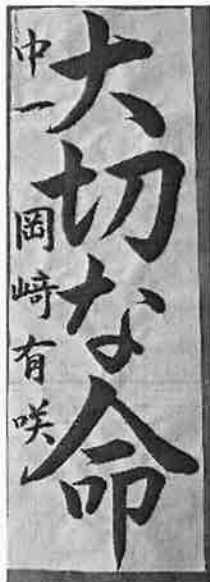 大切な命
中一 岡崎有咲